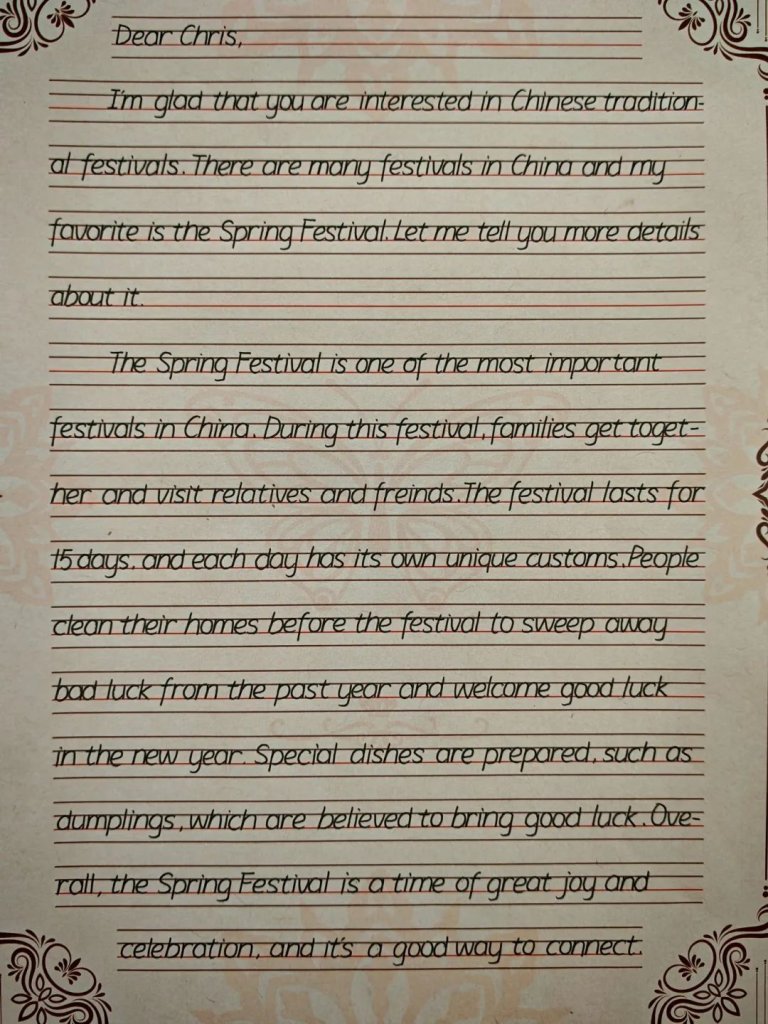 Dear Chris,
I'm glad that you are interested in Chinese tradition-
al festivals. There are many festivals in China and my
favorite is the Spring Festival. Let me tell you more details
about it.
The Spring Festival is one of the most important
festivals in China. During this festival, families get toget-
her and visit relatives and freinds. The festival lasts for
15 days. and each day has its own unique customs. People
clean their homes before the festival to sweep away
bad luck from the past year and welcome good luck
in the new year. Special dishes are prepared, such as
dumplings, which are believed to bring good luck. Ove-
rall, the Spring Festival is a time of great joy and
celebration, and it's a good way to connect.